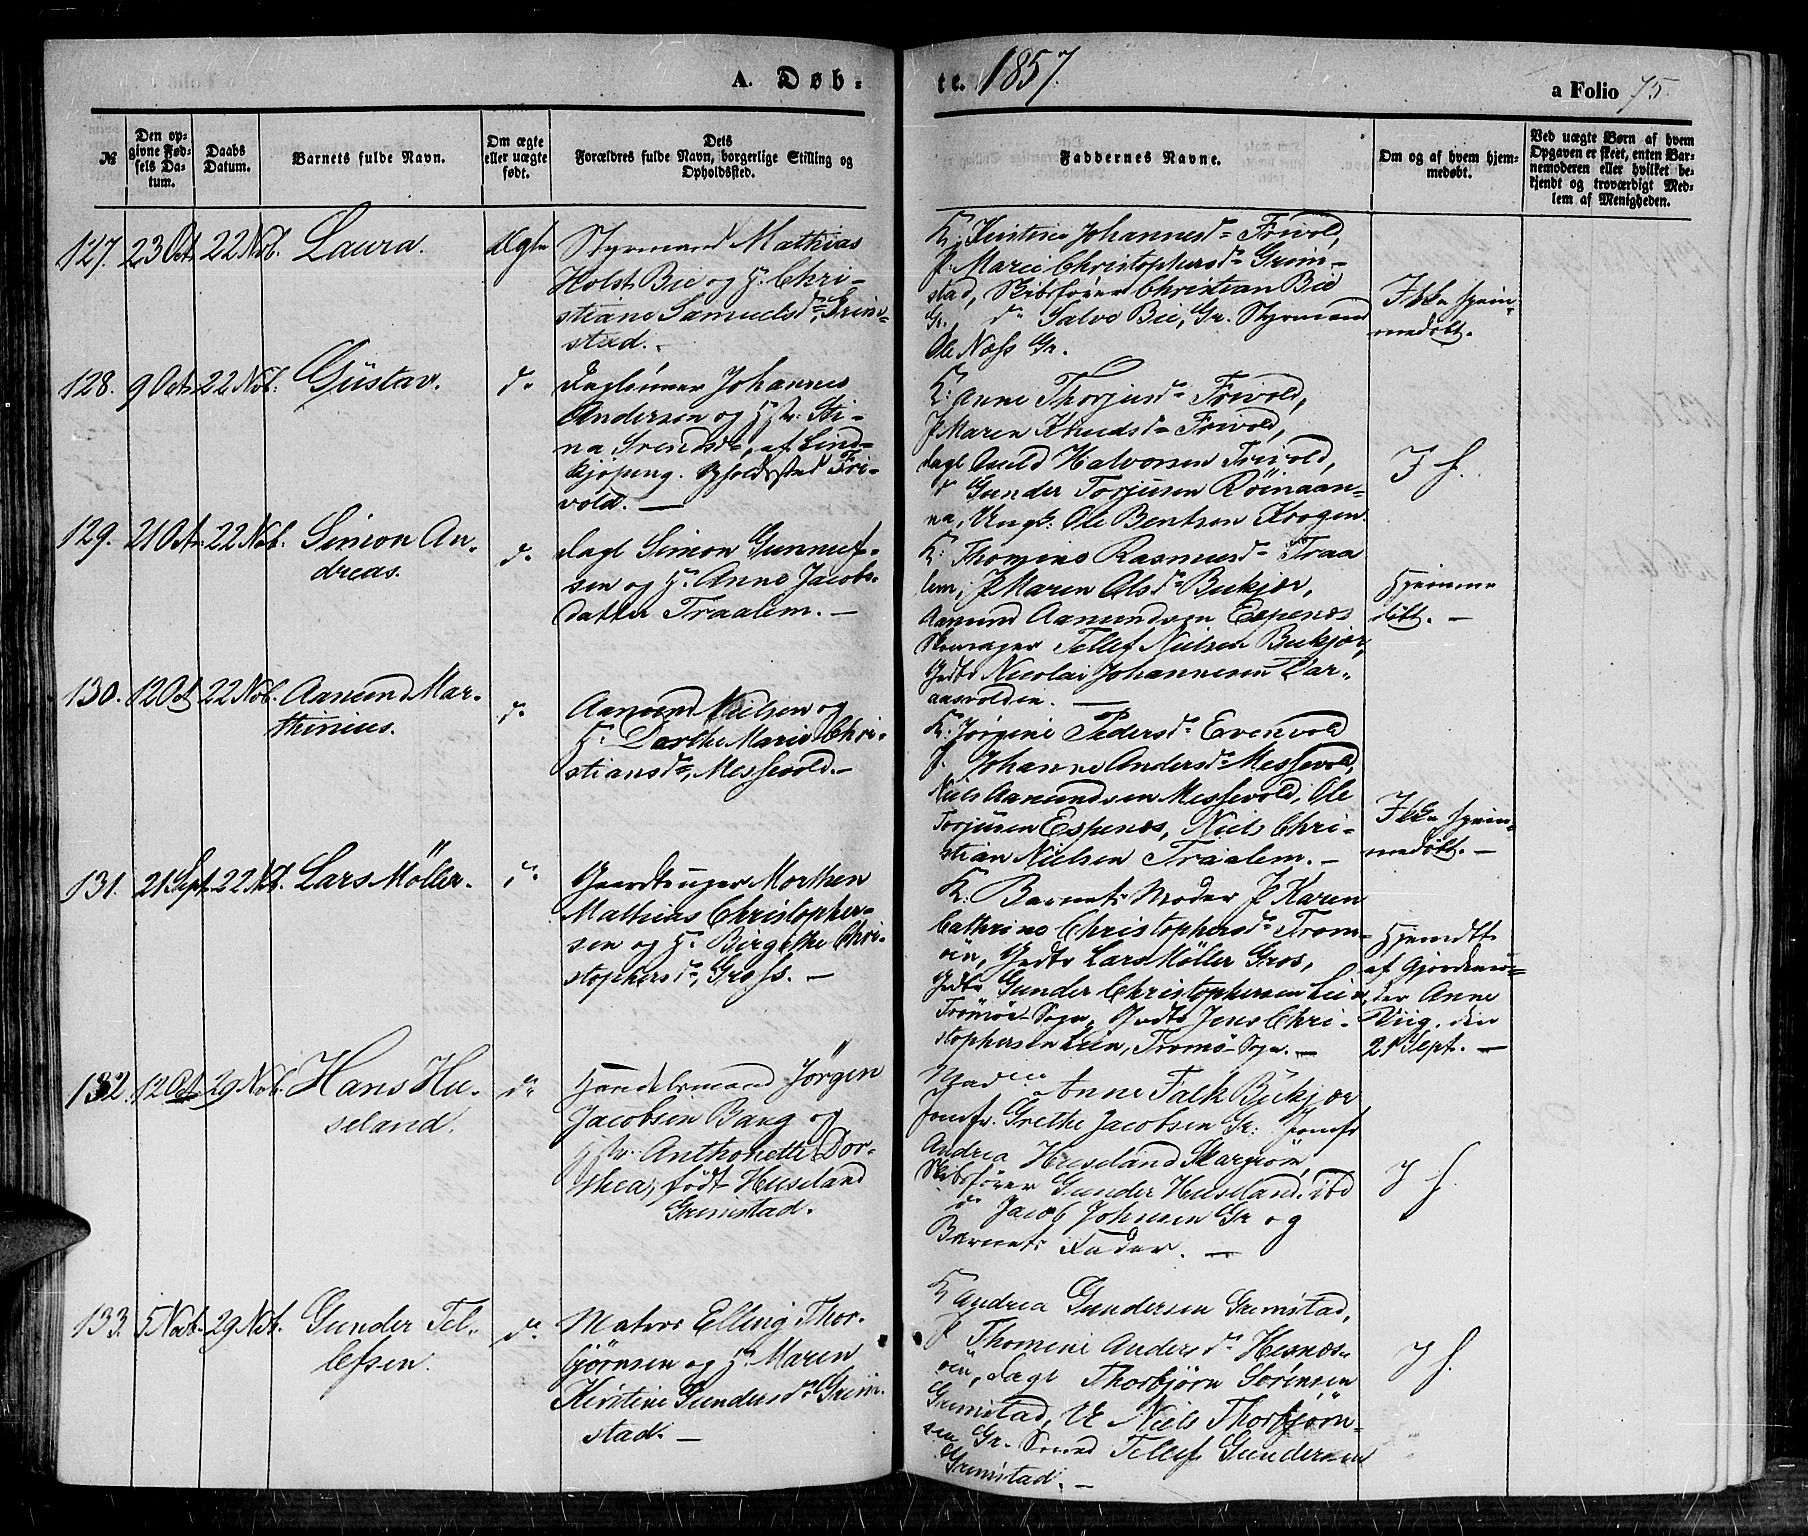 A. Døb-
te. 1857
a Folio 75.
№
Den op-
givne Fød-
sels Da-
tum.
Daabs
Datum.
Barnets fulde Navn.
Om ægte
eller uægte
født.
Dets
Forældres fulde Navn, borgerlige Stilling og
Opholdssted.
Faddernes Navne.
Om og af hvem hjem-
medøbt.
Ved uægte Børn af hvem
Opgaven er skeet, enten Bar-
nemoderen eller hvilket be-
kjendt og troværdigt Med-
lem af Menigheden.
127. 23 Oct. 22 Nob. Laura. Ægte
Styrmand Mathias
Holst Bie og H. Chri-
stiane Samuelsd. Grim-
stad.
K. Kirstine Johannesd. Frivold,
P. Marie Christophersd. Grim-
stad, Skibsfører Christian Bie
Gr. d. Salve Bie, Gr. Styrmand
Ole Næss Gr.
Ikke hjem-
medøbt.
128. 9 Oct. 22 Nob. Gustav. do
Dagleiner Johannes
Andersen og Hstr. Sti-
na Svendsd., af Lind-
kjøping. Opholdssted Fri-
vold. —
K. Anne Thorjusd. Frivold,
P. Maren Knudsd. Frivold,
Dagl. Halvorsen Frivold,
d. Gunder Torjusen Rönaan-
na, Ungk. Ole Bentsen Krogen.
I h.
129. 21 Oct. 22 Nob. Simon An-
dreas. do
Dagl Simon Gunnuf-
sen og H. Anne Jacobs-
datter Traalem. —
K. Thomine Rasmusd. Traa
lem, P Maren Olsd. Bukjær,
Aamund Aamundsen Espenes
Tellef Nielsen Bukjær,
Gdbr. Nicolai Johannesen
aasvolden. —
Hjemme
døbt. —
130. 12 Oct 22 Nob. Aamund Mar-
thinius. do
Aamund Nielsen og
H. Dorthe Marie Chri-
stiansd., Messevold. —
K. Jørgine Pedersd. Evenvold
P. Johanne Andersd. Messevold,
Niels Aamundsen Messevold, Ole
Torjusen Espenes, Niels Chri-
stian Nielsen Traalem. —
Ikke hjem-
medøbt. —
131. 21 Sept. 22 Nob. Lars Møller. do
Gaardbruger Morthen
Mathias Christopher-
sen og H. Birgithe Chri-
stophersd., Gross. —
K. Barnets Moder P Karen
Cathrine Christophersd. Trom-
öen, Gdbr. Lars Møller Gros,
Gdbr. Gunder Christophersen Lien,
Tromöe-Sogn, Gdbr. Jens Chri-
stophersen Lien, Tromö-Sogn. —
Hjemdbt
af Gjordemo-
der Anne
Viig. den
21 Sept. —
132. 12 Oct. 29 Nob. Hans Hu-
seland. do
Handelsmand Jörgen
Jacobsen Bang og
Hstr. Anthonette Dor-
thea, født Huseland
Grimstad.
Madm Anne Falk Bukjær
Jomfr. Grethe Jacobsen Gr. Jomfr
Andrea Huseland
Skibsfører Gunder Huseland, ibd
do Jacob Johnsen Gr og
Barnets Fader. —
I h.
133. 5 Nob. 29 Nob. Gunder Tel-
lefsen. do
Matros Elling Thor-
björnsen og H. Maren
Kirstine Gundersd. Grim-
stad. —
K Andrea Gundersen Grimstad,
P Thomine Andersd. Hesnes-
öen, Dagl Thorbjørn Sörensen
Grimstad, U Niels Thorbjörn-
sen Gr. Smed Tellef Gundersen
Grimstad. —
I h.